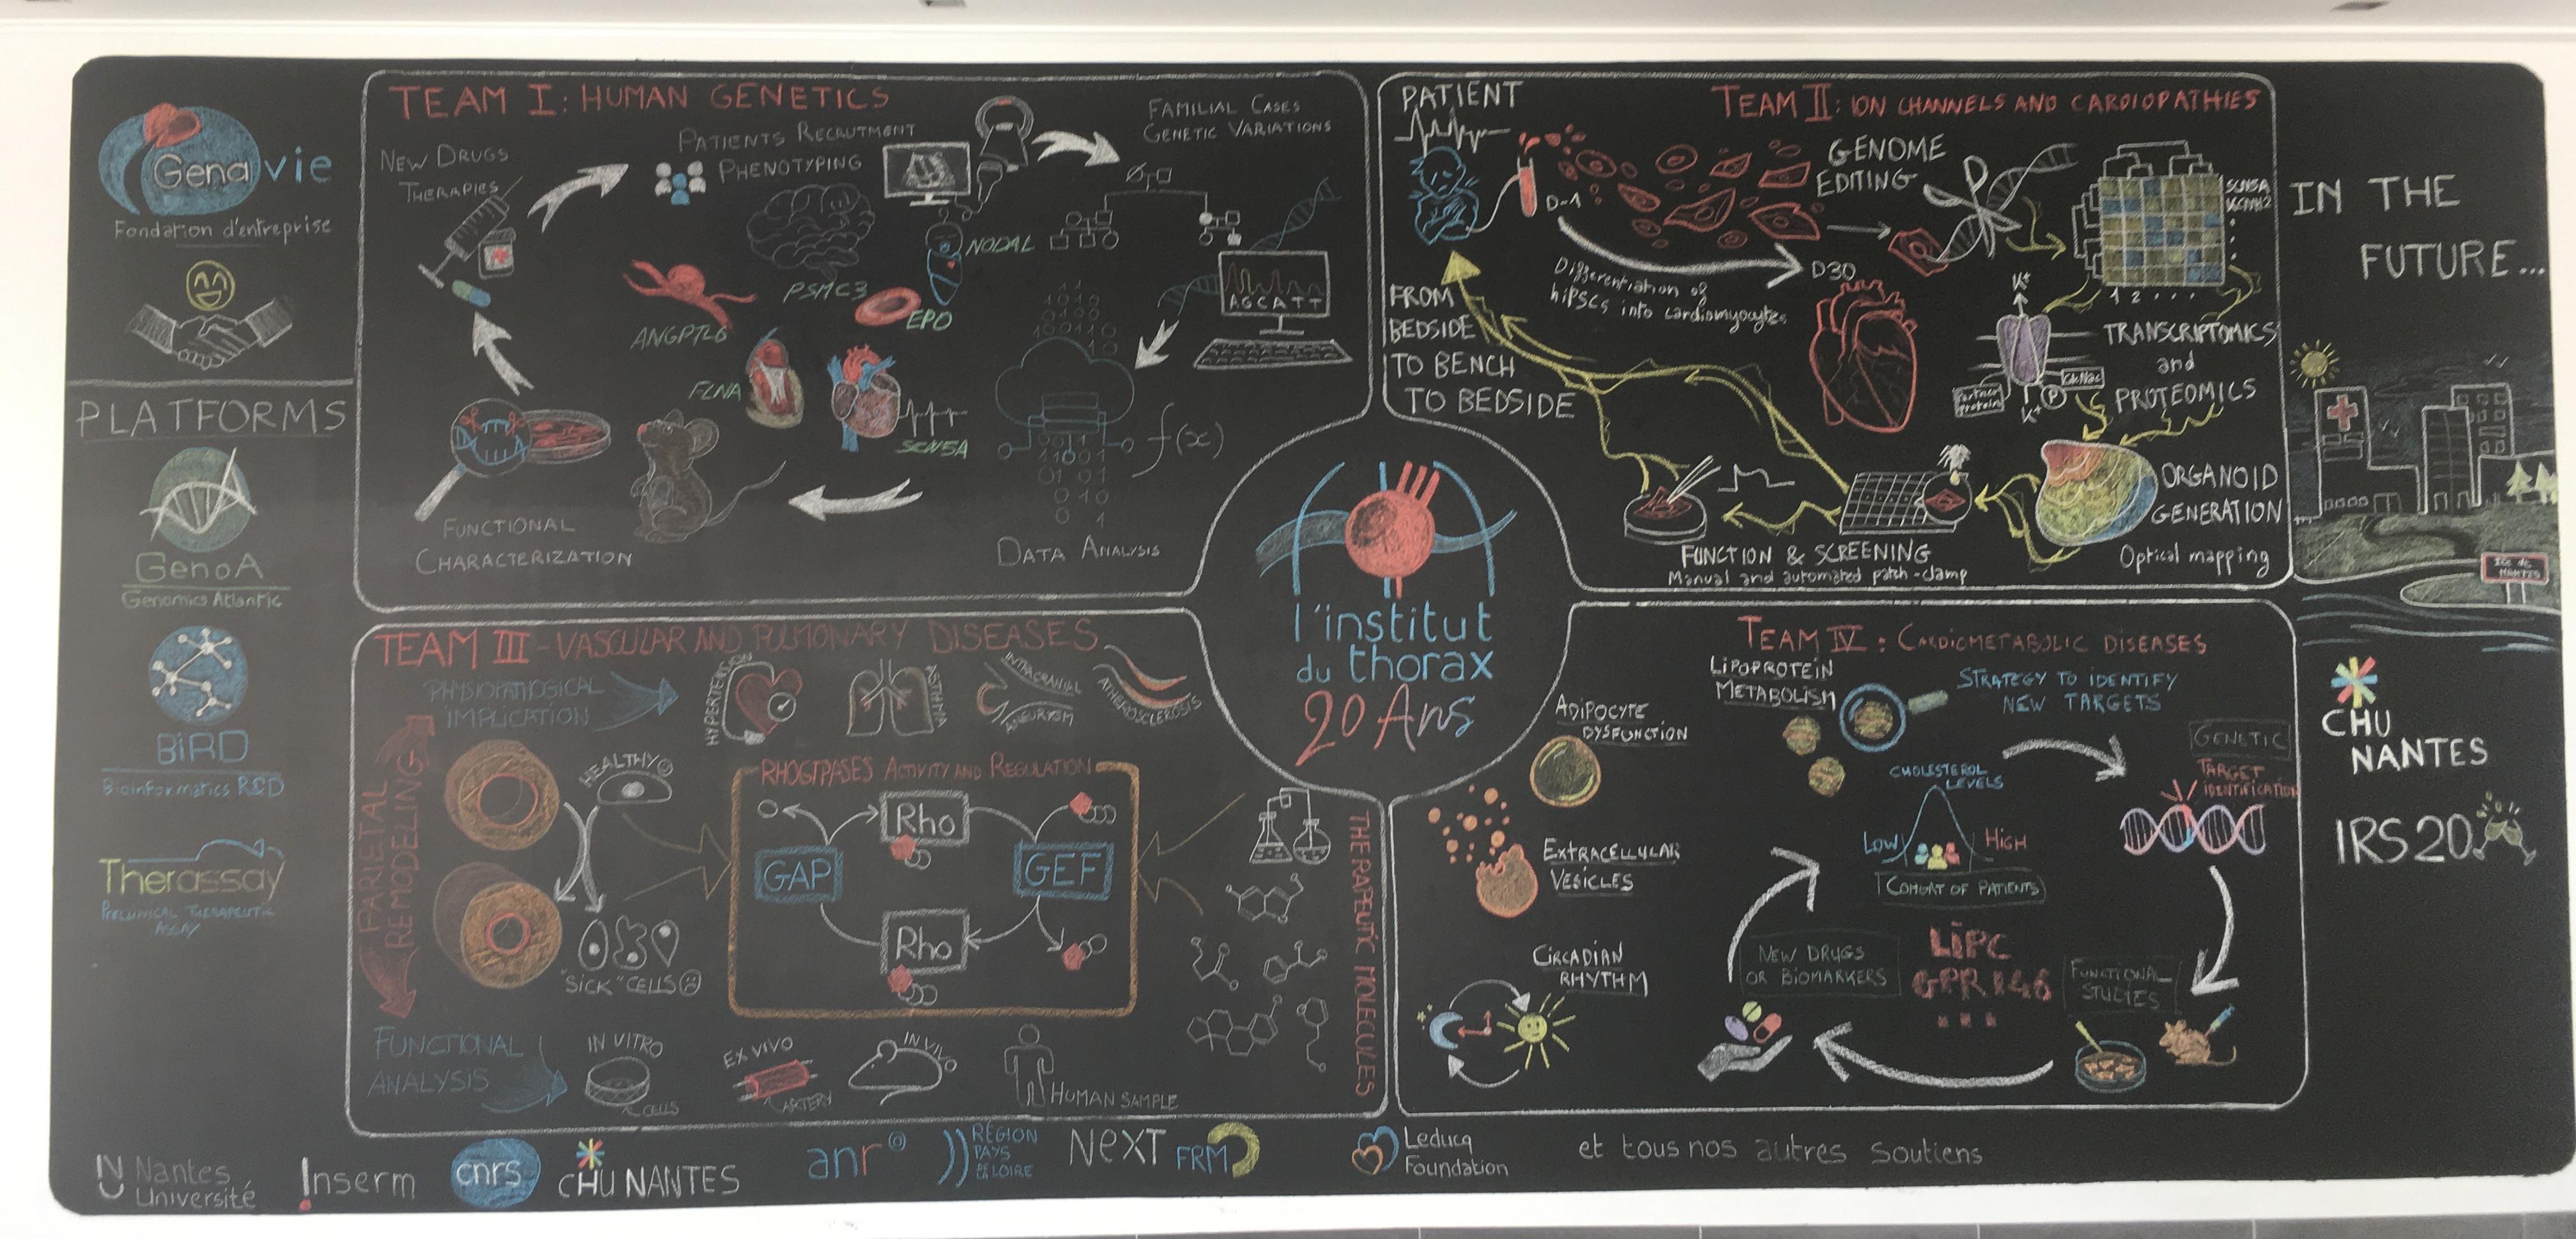 Genavie
Fondation d'entreprise
PLATFORMS
GenoA
Genomics Atlantic
BiRD
Bioinformatics R&D
Therassay
PRECLINICAL THERAPEUTIC
ASSAY
TEAM I: HUMAN GENETICS
NEW DRUGS
THERAPIES
PATIENTS RECRUTMENT
PHENOTYPING
FAMILIAL CASES
GENETIC VARIATIONS
NODAL
PSMC3
EPO
ANGPTL6
FLNA
SCN5A
AGCATT
f(x)
DATA ANALYSIS
FUNCTIONAL
CHARACTERIZATION
PATIENT
TEAM II: ION CHANNELS AND CARDIOPATHIES
D-1
GENOME
EDITING
SCN5A
KCNH2
1 2 . . .
D30
Differentiation of
hiPSCs into cardiomyocytes
FROM
BEDSIDE
TO BENCH
TO BEDSIDE
K+
GlcNac
Partner
protein
P
K+
TRANSCRIPTOMICS
and
PROTEOMICS
ORGANOID
GENERATION
Optical mapping
FUNCTION & SCREENING
Manual and automated patch-clamp
IN THE
FUTURE...
ILE DE
NANTES
l'institut
du thorax
20 Ans
TEAM III - VASCULAR AND PULMONARY DISEASES
PHYSIOPATHOLOGICAL
IMPLICATION
HYPERTENSION
ASTHMA
INTRACRANIAL
ANEURYSM
ATHEROSCLEROSIS
PARIETAL
REMODELING
HEALTHY
"SICK" CELLS
RHOGTPASES ACTIVITY AND REGULATION
Rho
GAP
GEF
Rho
THERAPEUTIC MOLECULES
FUNCTIONAL
ANALYSIS
IN VITRO
CELLS
EX VIVO
ARTERY
IN VIVO
HUMAN SAMPLE
TEAM IV : CARDIOMETABOLIC DISEASES
LIPOPROTEIN
METABOLISM
STRATEGY TO IDENTIFY
NEW TARGETS
ADIPOCYTE
DYSFUNCTION
GENETIC
TARGET
IDENTIFICATION
CHOLESTEROL
LEVELS
LOW
HIGH
COHORT OF PATIENTS
EXTRACELLULAR
VESICLES
CIRCADIAN
RHYTHM
NEW DRUGS
OR BIOMARKERS
LIPC
GPR146
...
FUNCTIONAL
STUDIES
CHU
NANTES
IRS20
Nantes
Université
Inserm
cnrs
CHU NANTES
anr
RÉGION
PAYS
DE LA LOIRE
NEXT
FRM
Leducq
Foundation
et tous nos autres soutiens